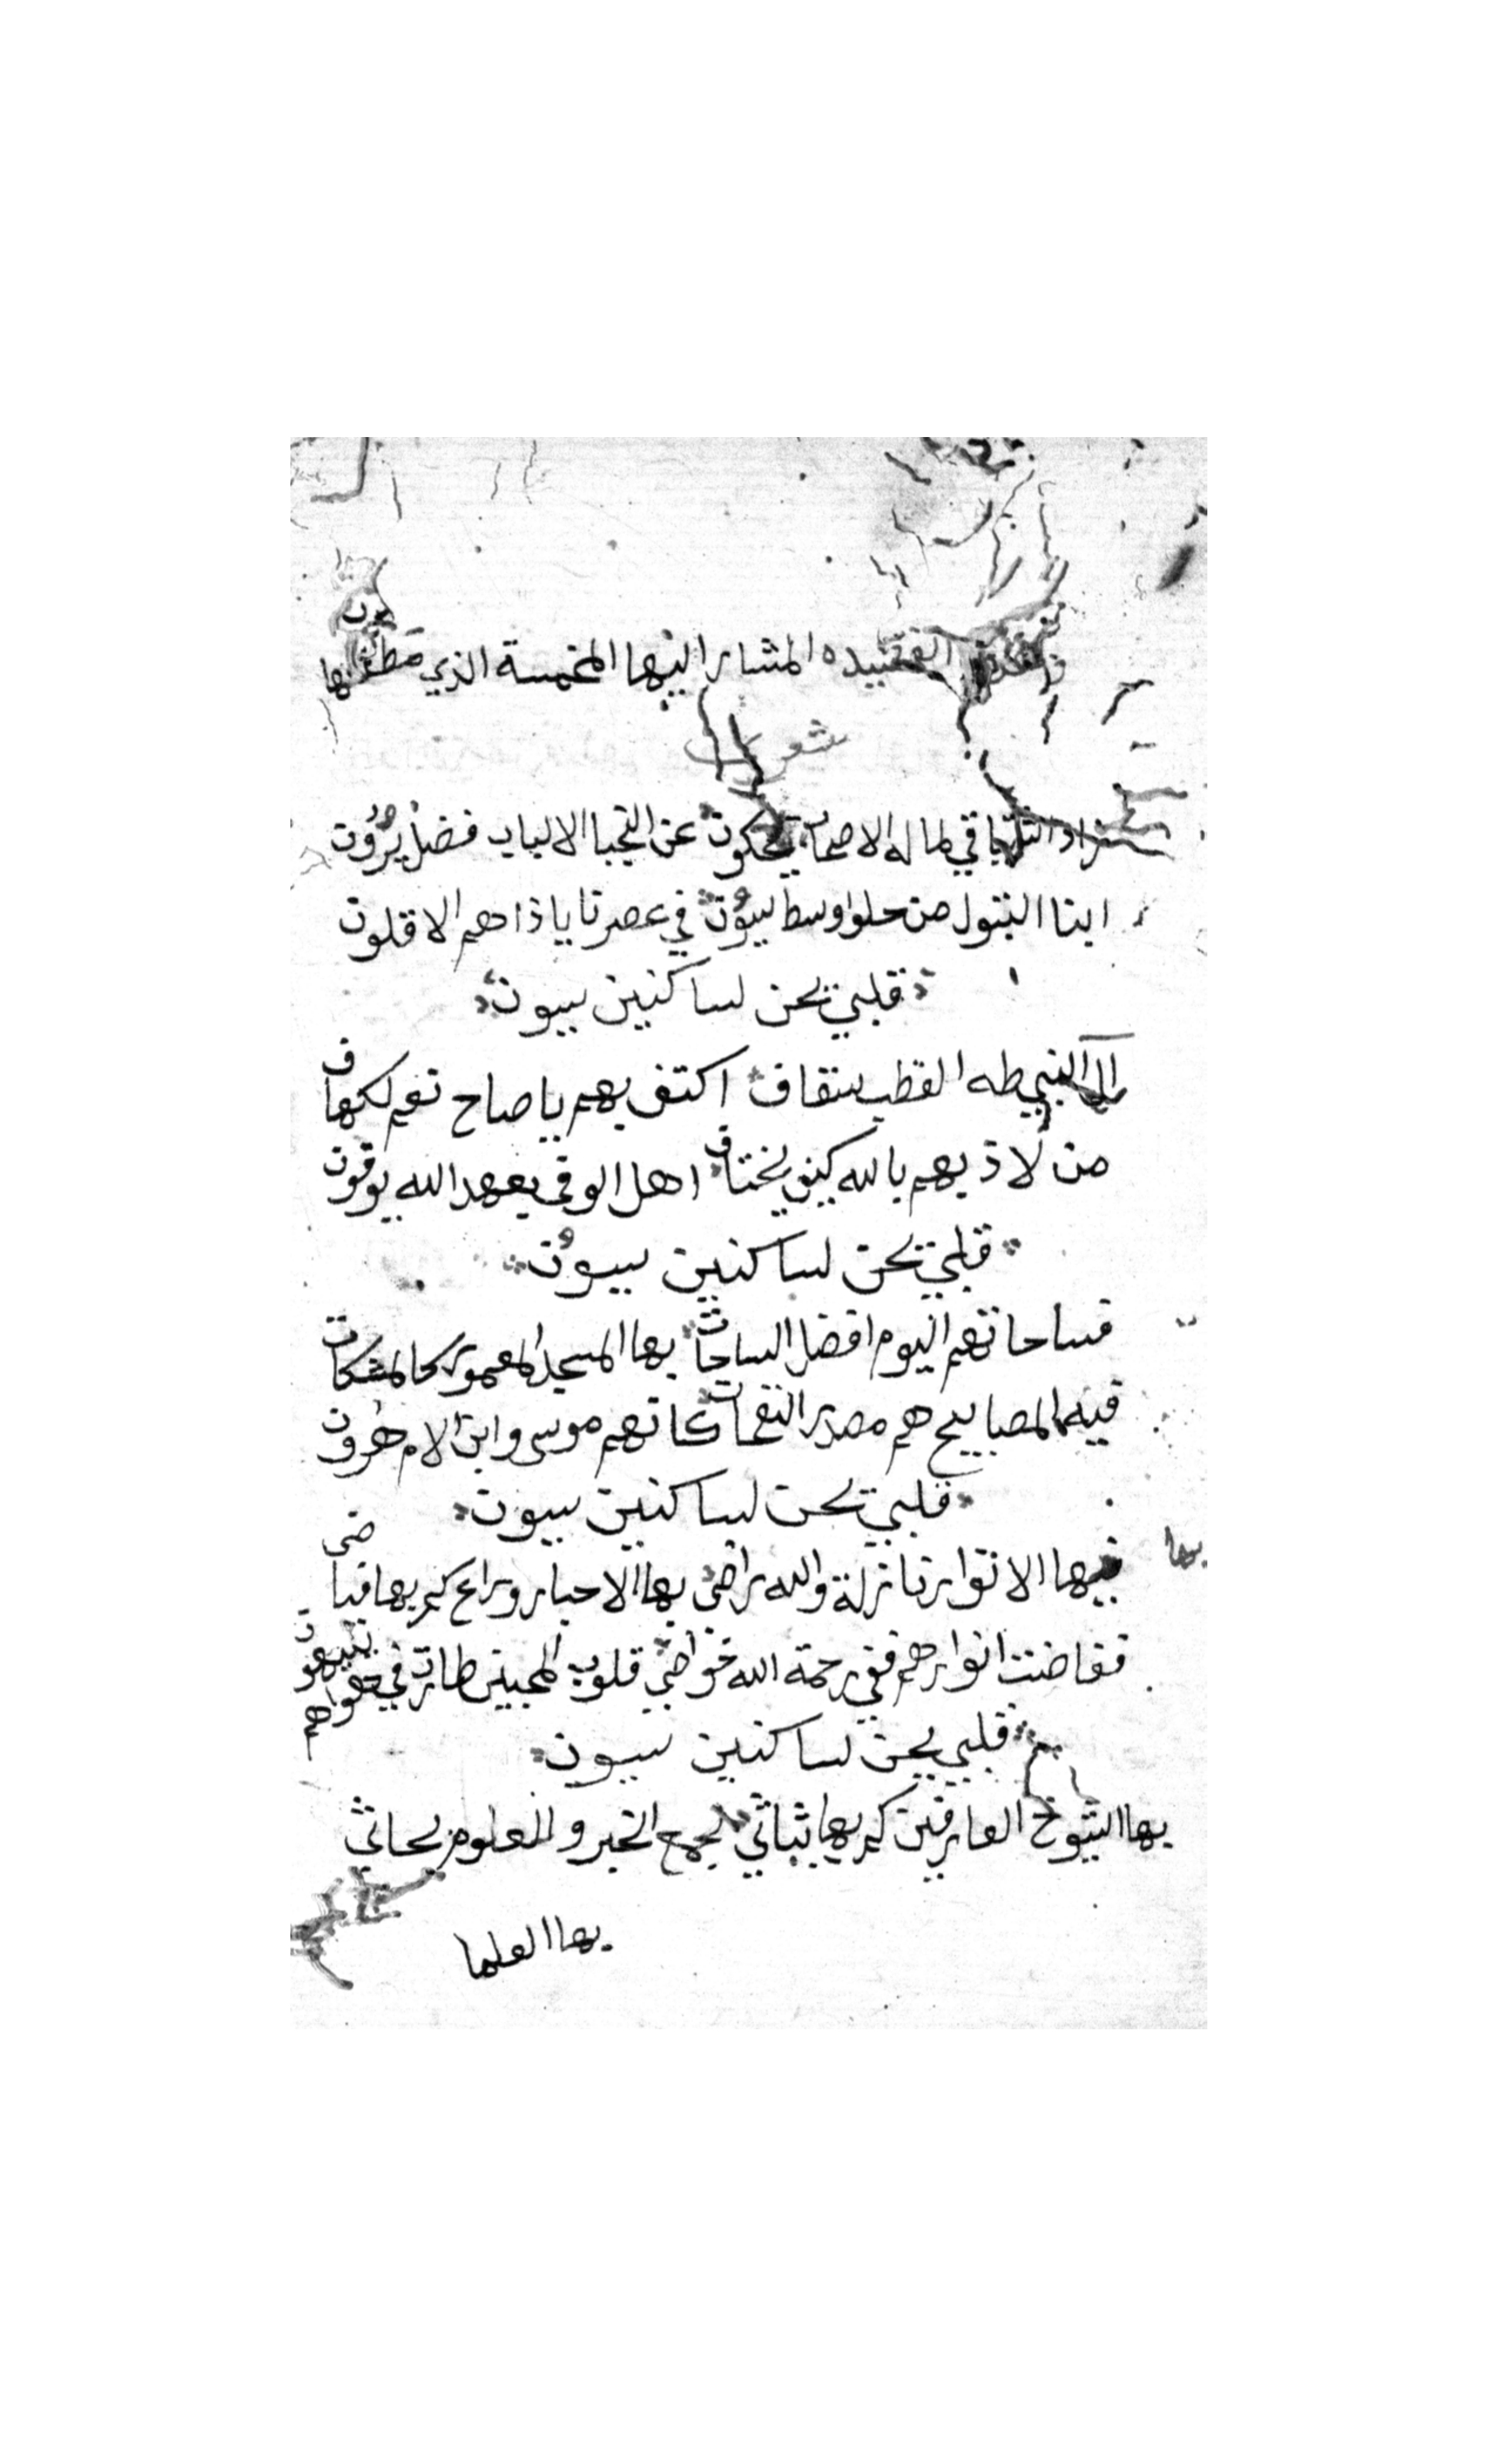 القصيده المشار اليها المخمسة الذي مطلعها
شعر
زاد التلهاقي لما له الاصحاب يحكون عن النجبا الالباب فضل يروون
ابنا البتول من حلوا وسط سيون في عصرنا يا ذا هم الاقلون
قلبي يحن لساكنين سيون
ال النبي طه القطب سقاف اكتف بهم يا صاح نعم لكهاف
من لاذ بهم بالله كيف يختاف اهل الوفى بعهد الله يوفون
قلبي يحن لساكنين سيون
فساحاتهم اليوم افضل الساحات بها المسجد المعمور كالمشكات
فيه المصابيح هم مصدر النفحات كانهم موسى وابن الام هرون
قلبي يحن لساكنين سيون
بها
فيها الانوار نازلة والله راضى بها الاحبار وراع كم بها قياضى
ففاضت انوارهم ففي رحمة الله خواضي قلوب المحبين طارت في هواهم
قلبي يحن لساكنين سيون
بها الشيوخ العارفين كم بها يثاثي لجمع الخير والعلوم لحاثي
بها العلما